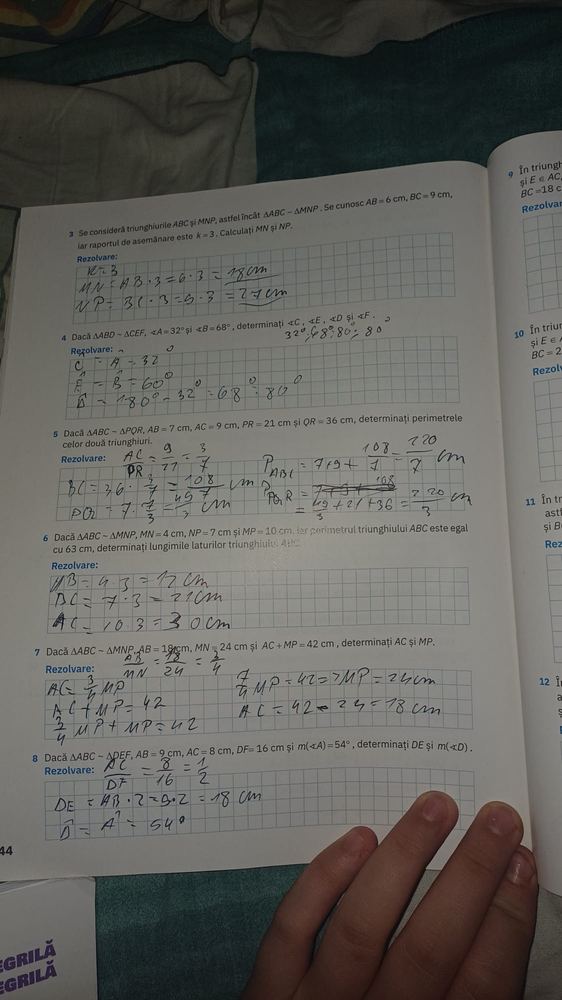 3 Se consideră triunghiurile ABC și MNP, astfel încât ΔABC ~ ΔMNP. Se cunosc AB = 6 cm, BC = 9 cm,
iar raportul de asemănare este k = 3. Calculați MN și NP.
Rezolvare:
k=3
MN = AB·3 = 6·3 = 18cm
NP = BC·3 = 9·3 = 27cm
4 Dacă ΔABD ~ ΔCEF, ∢A = 32° și ∢B = 68°, determinați ∢C, ∢E, ∢D și ∢F.
32°; 68°; 80°; 80
Rezolvare:
Ĉ = Â = 32°
Ê = B̂ = 60°
D̂ = 180° - 32° - 68° = 80°
5 Dacă ΔABC ~ ΔPQR, AB = 7 cm, AC = 9 cm, PR = 21 cm și QR = 36 cm, determinați perimetrele
celor două triunghiuri.
Rezolvare: AC/PR = 9/21 = 3/7
P ABC = 7+9+ 108/7 = 220/7 cm
BC = 36 · 3/7 = 108/7 cm
PQ = 7 · 7/3 = 49/3 cm
P PQR = 49/3 + 21 + 36 = 220/3 cm
6 Dacă ΔABC ~ ΔMNP, MN = 4 cm, NP = 7 cm și MP = 10 cm, iar perimetrul triunghiului ABC este egal
cu 63 cm, determinați lungimile laturilor triunghiului ABC.
Rezolvare:
AB = 4·3 = 12 cm
BC = 7·3 = 21cm
AC = 10·3 = 30cm
7 Dacă ΔABC ~ ΔMNP, AB = 18cm, MN = 24 cm și AC + MP = 42 cm, determinați AC și MP.
Rezolvare: AB/MN = 18/24 = 3/4
AC = 3/4 MP
AC + MP = 42
3/4 MP + MP = 42
7/4 MP = 42 => MP = 24cm
AC = 42 - 24 = 18 cm
8 Dacă ΔABC ~ ΔDEF, AB = 9 cm, AC = 8 cm, DF = 16 cm și m(∢A) = 54°, determinați DE și m(∢D).
Rezolvare: AC/DF = 8/16 = 1/2
DE = AB·2 = 9·2 = 18 cm
D̂ = Â = 54°
44
9 În triungh
și E ∈ AC,
BC = 18 c
Rezolvar
10 În triun
și E ∈
BC = 2
Rezol
11 În tr
ast
și B
Rez
12
EGRILĂ
EGRILĂ